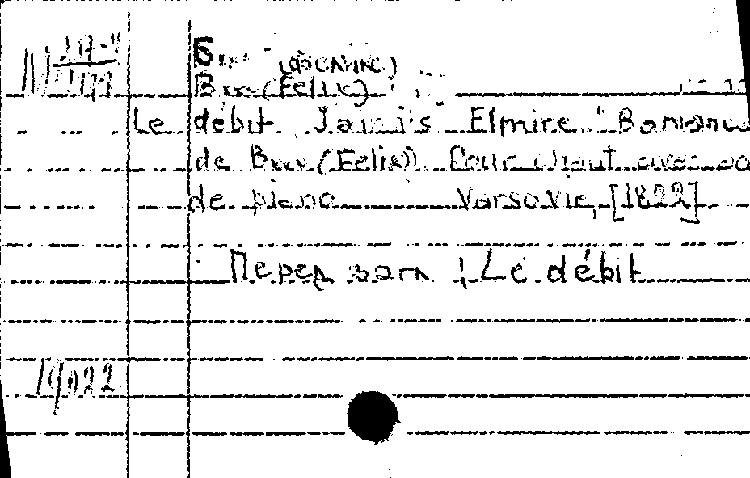 Б... (Феликс)
B... (Felix)
Le débit. J'aimais Elmire. Romance
de B... (Felix). Pour chant avec acc
de piano Varsovie, [1822]
Перед загл.: Le débit
19022